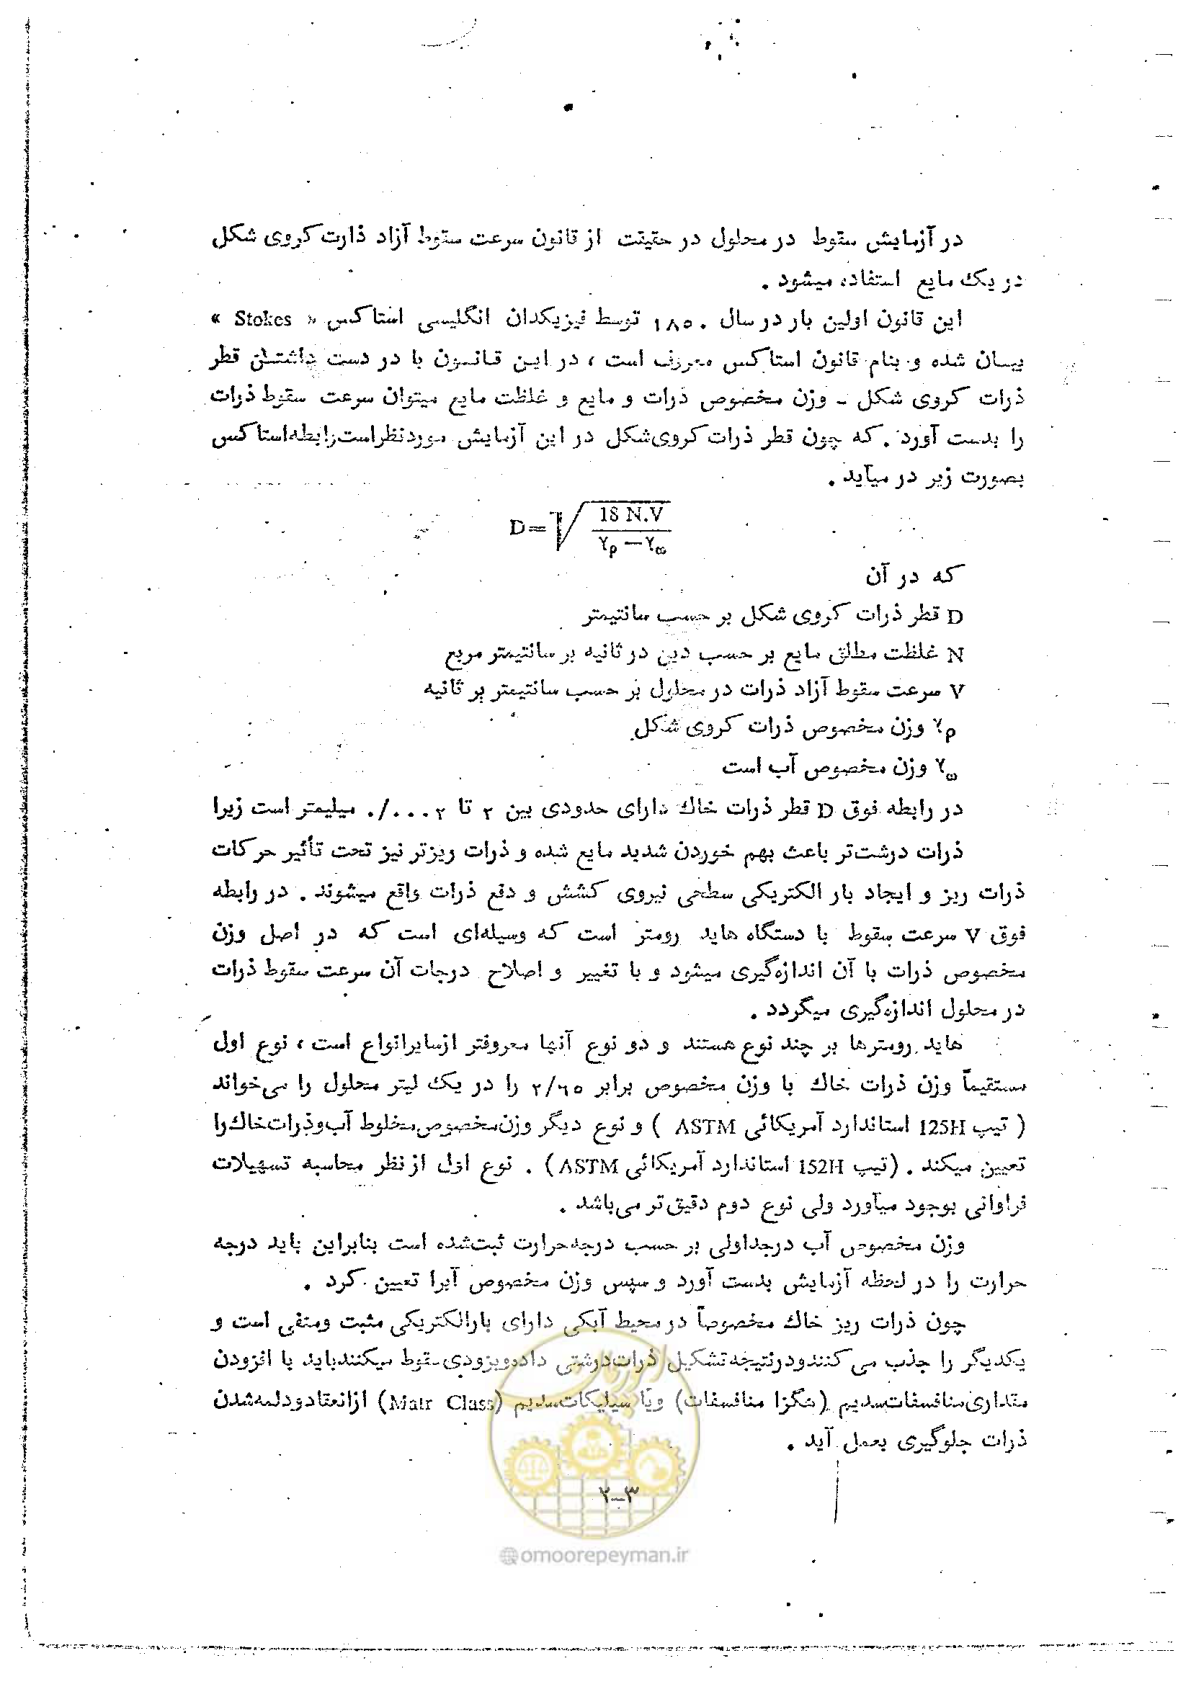 در آزمایش سقوط در محلول در حقیقت از قانون سرعت سقوط آزاد ذارت کروی شکل
در یک مایع استفاده میشود .
این قانون اولین بار در سال ۱۸۵۰ توسط فیزیکدان انگلیسی استاکس « Stokes »
بیان شده و بنام قانون استاکس معروف است ، در این قانون با در دست داشتن قطر
ذرات کروی شکل ـ وزن مخصوص ذرات و مایع و غلظت مایع میتوان سرعت سقوط ذرات
را بدست آورد . که چون قطر ذرات کروی‌شکل در این آزمایش موردنظراست‌رابطه‌استاکس
بصورت زیر در میآید .
D=√(18 N.V / γρ − γω)
که در آن
D قطر ذرات کروی شکل بر حسب سانتیمتر
N غلظت مطلق مایع بر حسب دین در ثانیه بر سانتیمتر مربع
V سرعت سقوط آزاد ذرات در محلول بر حسب سانتیمتر بر ثانیه
γρ وزن مخصوص ذرات کروی شکل
γω وزن مخصوص آب است
در رابطه فوق D قطر ذرات خاک دارای حدودی بین ۲ تا ۰/۰۰۰۲ میلیمتر است زیرا
ذرات درشت‌تر باعث بهم خوردن شدید مایع شده و ذرات ریزتر نیز تحت تأثیر حرکات
ذرات ریز و ایجاد بار الکتریکی سطحی نیروی کشش و دفع ذرات واقع میشوند . در رابطه
فوق V سرعت سقوط با دستگاه هاید رومتر است که وسیله‌ای است که در اصل وزن
مخصوص ذرات با آن اندازه‌گیری میشود و با تغییر و اصلاح درجات آن سرعت سقوط ذرات
در محلول اندازه‌گیری میگردد .
هاید رومترها بر چند نوع هستند و دو نوع آنها معروفتر ازسایرانواع است ، نوع اول
مستقیماً وزن ذرات خاک با وزن مخصوص برابر ۲/۶۵ را در یک لیتر محلول را می‌خواند
( تیپ 125H استاندارد آمریکائی ASTM ) و نوع دیگر وزن‌مخصوص‌مخلوط آب‌وذرات‌خاک‌را
تعیین میکند . (تیپ 152H استاندارد آمریکائی ASTM) . نوع اول از نظر محاسبه تسهیلات
فراوانی بوجود میآورد ولی نوع دوم دقیق‌تر می‌باشد .
وزن مخصوص آب درجداولی بر حسب درجه‌حرارت ثبت‌شده است بنابراین باید درجه
حرارت را در لحظه آزمایش بدست آورد و سپس وزن مخصوص آبرا تعیین کرد .
چون ذرات ریز خاک مخصوصاً در محیط آبکی دارای بارالکتریکی مثبت ومنفی است و
یکدیگر را جذب می‌کنندودرنتیجه‌تشکیل ذرات‌درشتی داده‌وبزودی‌سقوط میکنندباید با افزودن
مقداری‌متافسفات‌سدیم (هگزا متافسفات) ویا سیلیکات‌سدیم (Matr Class) ازانعقادودلمه‌شدن
ذرات جلوگیری بعمل آید .
۲-۳
@omoorepeyman.ir